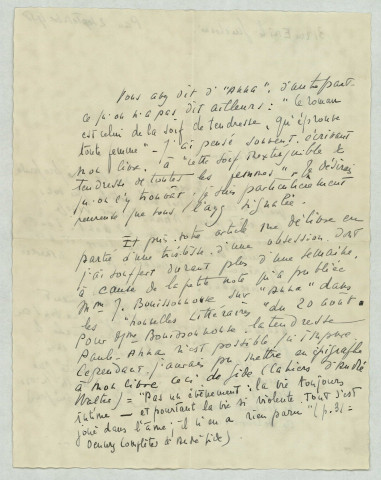 Vous avez dit d'"Anna", d'autre part
ce qu'on n'a pas dit ailleurs : "le roman
est celui de la soif de tendresse qu'éprouve
toute femme" - J'ai pensé souvent, écrivant
mon livre, à "cette soif inextinguible de
tendresse de toutes les femmes", je désirais
qu'on l'y trouvât, je suis particulièrement
que vous l'ayez signalée.
Et puis, votre article me délivre en
partie d'une tristesse, d'une obsession dont
j'ai souffert durant plus d'une semaine,
à cause de la petite note qu'a publiée
Mme J. Bouissounouse sur "Anna" dans
les "Nouvelles Littéraires" du 20 août.
Pour Mme Bouissounouse, la tendresse
Paule-Anna n'est possible
Cependant, j'aurais pu mettre en épigraphe
à mon livre ceci de Gide (Cahiers d'André
Walter) = "Pas un évènement : la vie toujours
intime - et pourtant la vie si violente. Tout s'est
joué dans l'âme ; il n'en a rien paru" (p. 34 =
Oeuvres Complètes d'André Gide)